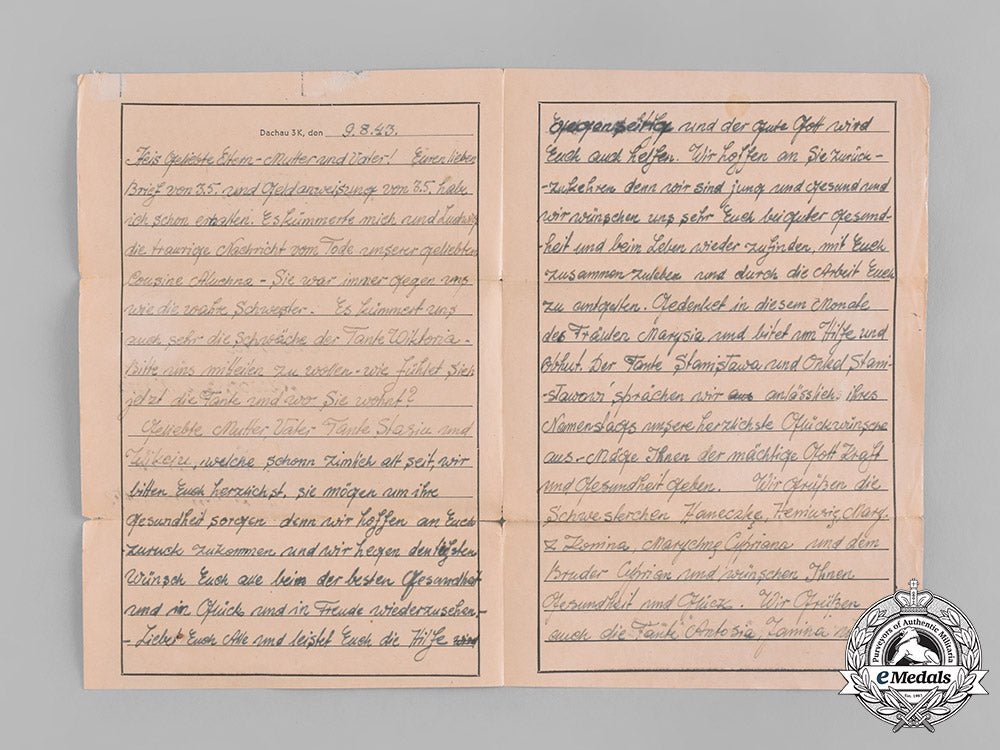 Dachau 3K, den 9.8.43.
Heis Geliebte Eltern - Mutter und Vater! Euren lieben
Brief von 3.5. und Geldanweisung von 3.5. habe
ich schon erhalten. Es kümmerte mich und Ludwig
die traurige Nachricht vom Tode unserer geliebten
Cousine Aluchna - Sie war immer gegen uns
wie die wahre Schwester. Es kümmert uns
auch sehr die Schwäche der Tante Wiktoria -
Bitte uns mitteien zu wollen - wie fühlet sich
jetzt die Tante und wo Sie wohnt?
Geliebte Mutter Vater Tante Staziu und
welche schonn zimlich alt seit, wir
bitten Euch herzlichst, sie mögen um ihre
Gesundheit sorgen denn wir hoffen an Euch
zurück zukommen und wir hegen den
Wünsch Euch alle beim der besten Gesundheit
und in Glück und in Freude wiederzusehen -
- Liebet Euch Alle und leistet Euch die Hilfe
Gegenseitige und der gute Gott wird
Euch auch helfen. Wir hoffen an Sie zurück -
- zukehren denn wir sind jung und gesund und
wir wünschen uns sehr Euch bei guter Gesund-
-heit und beim Leben wieder zufinden, mit Euch
zusammen zuleben und durch die Arbeit Euch
zu Gedenket in diesem Monate
des Fräulen Marysia und bitet um Hilfe und
Obhut. Der Tante Stanisława und Onkel Stani-
-sławowi sprächen wir anlässlich ihres
Namenstags unsere herzlichste Glückwünsche
aus. Möge Ihnen der mächtige Gott Kraft
und Gesundheit geben. Wir Grüßen die
Schwesterchen Haneczkę, Heniusię, Mary.
z Konina, Marychnę Cypriana und dem
Bruder Cyprian und wünschen Ihnen
Gesundheit und Glück. Wir Grüßen
auch die Tante Antosia Janina
Purveyors of Authentic Militaria
eMedals
Est. 1967